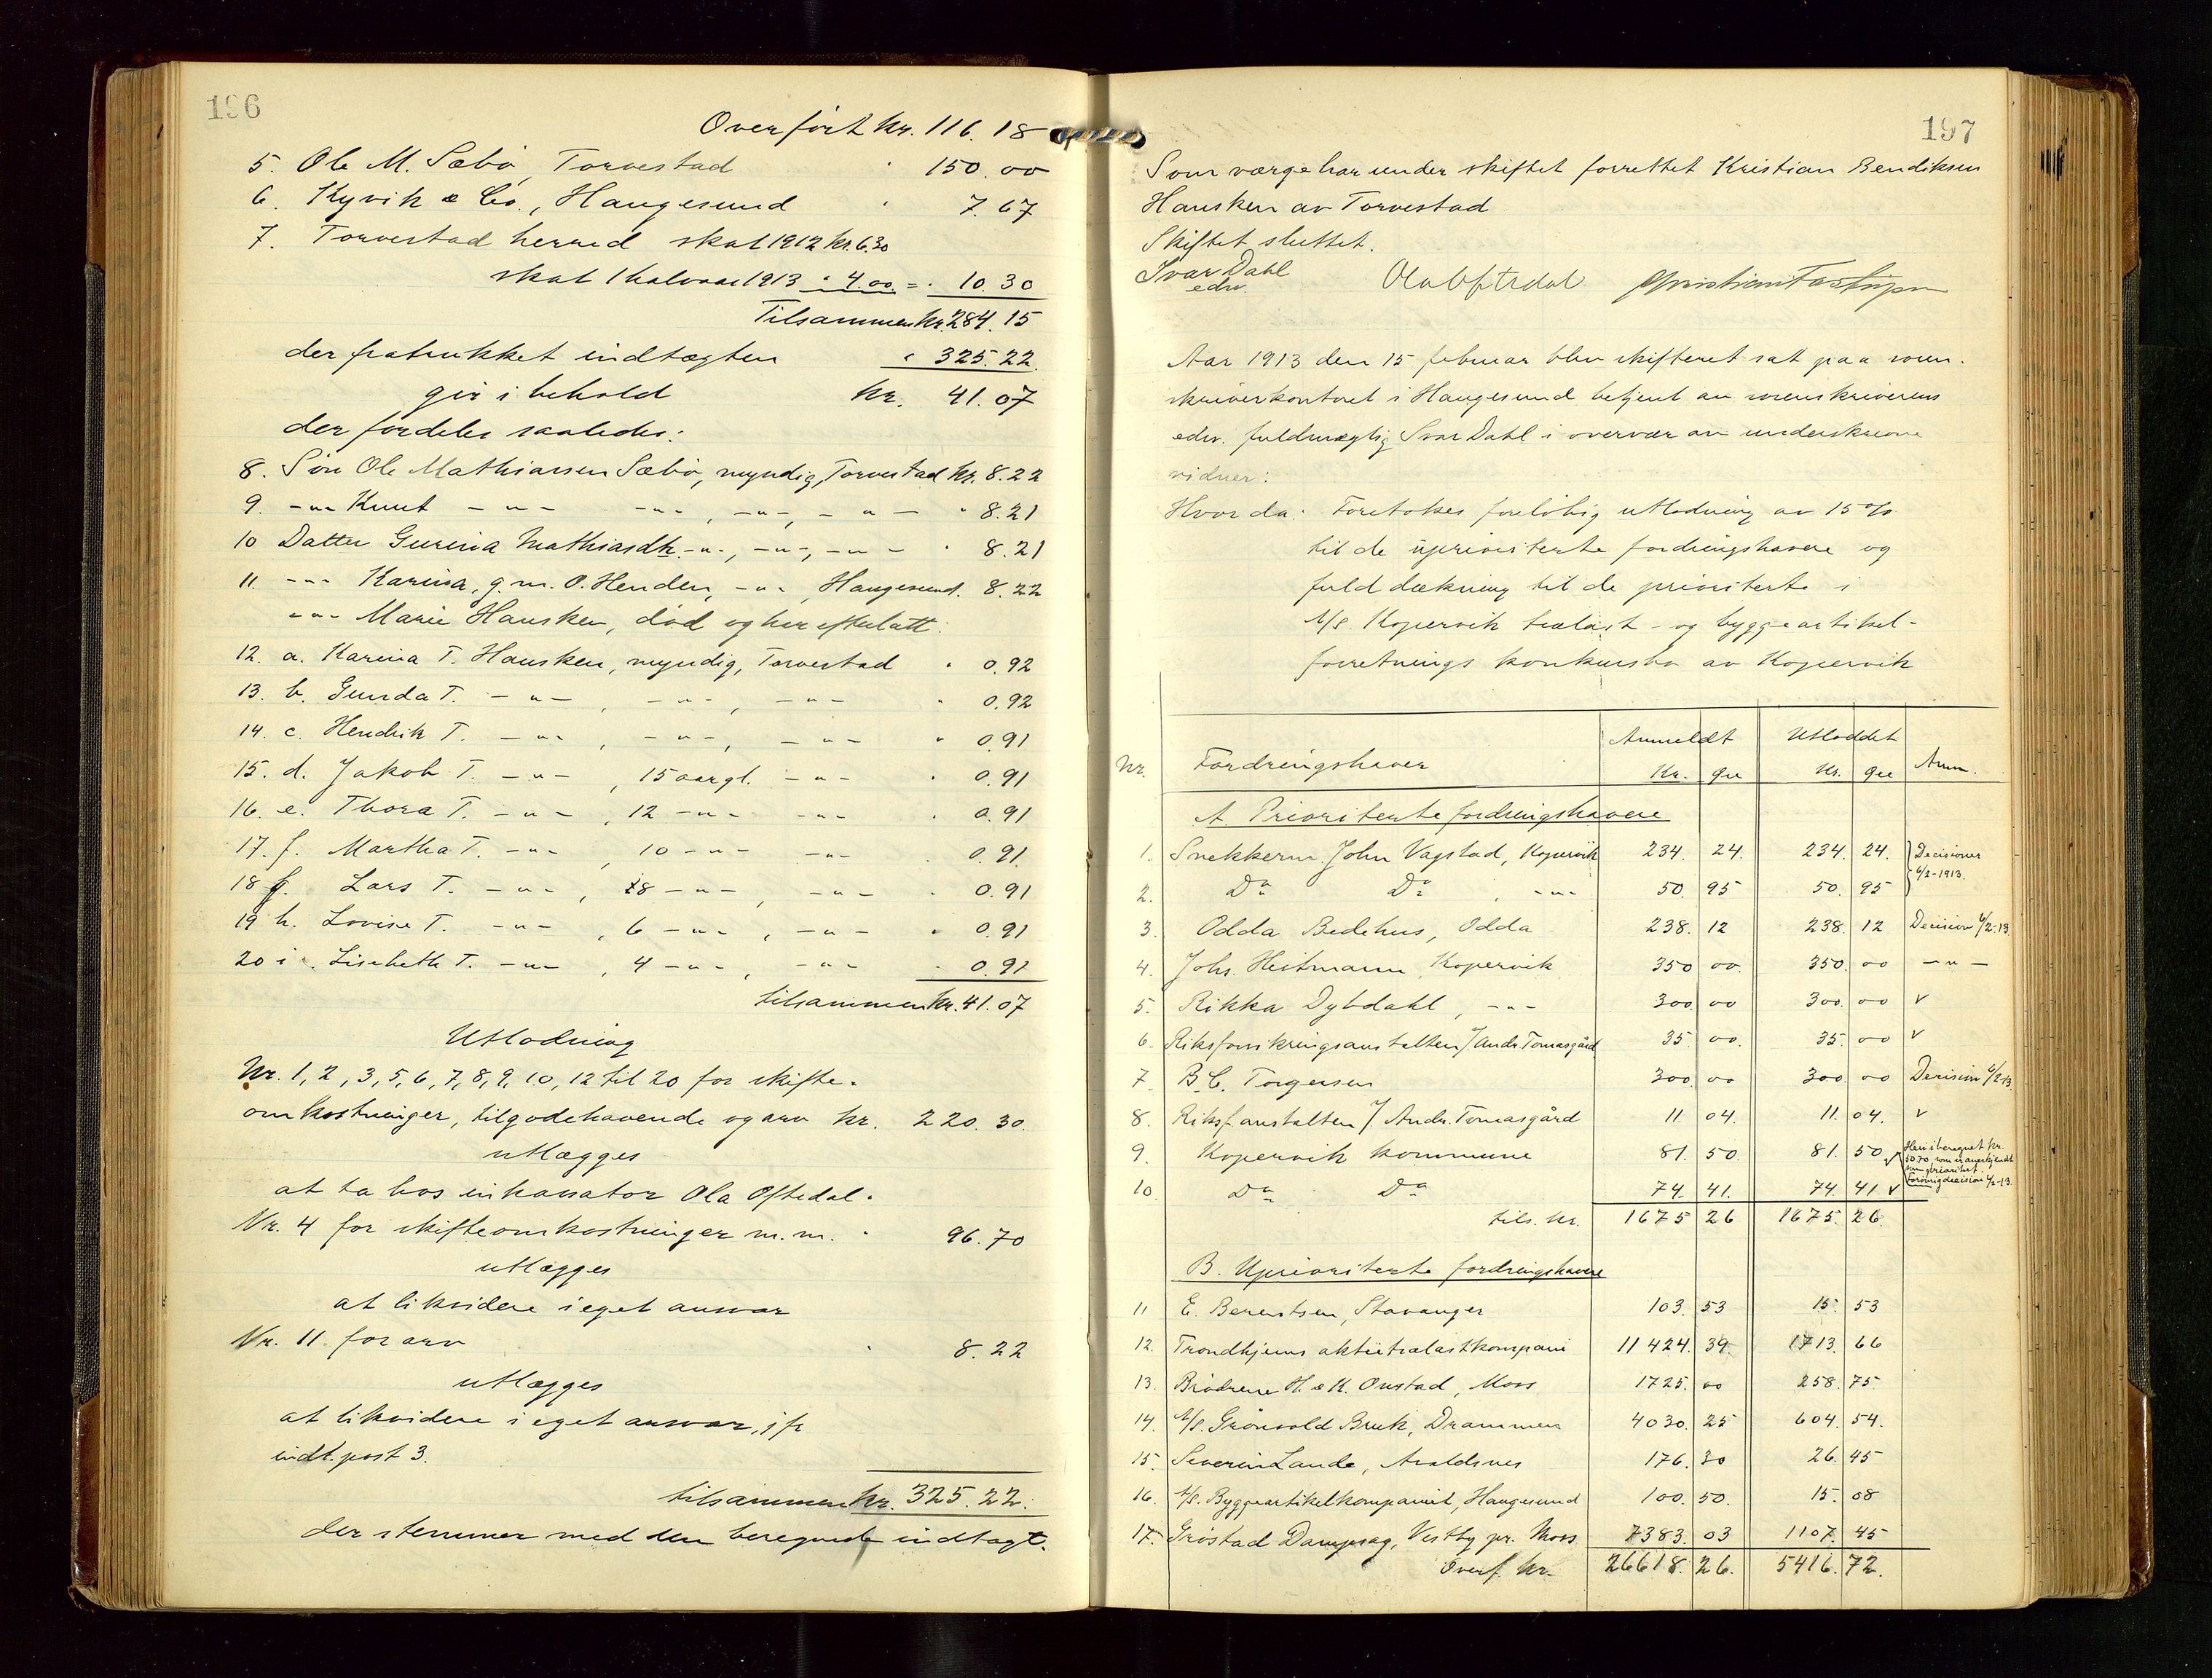 196
Overført kr. 116.18
5. Ole M. Sæbø, Torvestad " 150.00
6. Kyvik & Co., Haugesund " 7.67
7. Torvestad herred skat 1912 kr. 6.30
skat 1 halvaar 1913 " 4.00 = " 10.30
Tilsammen kr. 284.15
der fratrukket indtægten " 325.22
gir i behold kr. 41.07
der fordeles saaledes:
8. Søn Ole Mathiassen Sæbø, myndig, Torvestad kr. 8.22
9. -"- Knut -"- -"-, -"-, -"- " 8.21
10 Datter Gurina Mathiasdtr. -"-, -"-, -"- " 8.21
11. -"- Karina, g.m. O. Henden, -"-, Haugesund. 8.22
-"- Marie Hausken, død og har efterlatt:
12. a. Karina T. Hausken, myndig, Torvestad " 0.92
13. b. Gunda T. -"-, -"-, -"- " 0.92
14. c. Hendrik T. -"-, -"-, -"- " 0.91
15. d. Jakob T. -"-, 15 aar gl. -"- " 0.91
16. e. Thora T. -"-, 12 -"- -"- " 0.91
17. f. Martha T. -"-, 10 -"- -"- " 0.91
18 g. Lars T. -"-, 8 -"-, -"- " 0.91
19 h. Lovise T. -"-, 6 -"-, -"- " 0.91
20 i. Lisebeth T. -"-, 4 -"-, -"- " 0.91
tilsammen kr. 41.07
Utlodning
Nr. 1, 2, 3, 5, 6, 7, 8, 9, 10, 12 til 20 for skifte-
omkostninger, tilgodehavende og arv kr. 220.30.
utlægges
at ta hos inkassator Ola Oftedal.
Nr. 4 for skifteomkostninger m.m. " 96.70
utlægges
at likvidere i eget ansvar
Nr. 11 for arv " 8.22
utlægges
at likvidere i eget ansvar, jfr
indt. post 3.
tilsammen kr. 325.22.
der stemmer med den beregnede indtægt.
197
Som værge har under skiftet forrettet Kristian Bendiksen
Hausken av Torvestad
Skiftet sluttet.
Ivar Dahl Ola Oftedal
edsv.
Aar 1913 den 15 februar blev skifteret sat paa soren-
skriverkontoret i Haugesund betjent av sorenskriverens
edsv. fuldmægtig Ivar Dahl i overvær av underskrevne
vidner:
Hvor da: Foretokes foreløbig utlodning av 15 %
til de uprioriterte fordringshavere og
fuld dækning til de prioriterte i
A/S. Kopervik trælast- og byggeartikel-
forretnings konkursbo av Kopervik
Nr. Fordringshaver Anmeldt Utloddet Anm.
Kr. Øre Kr. Øre
A. Prioriterte fordringshavere
1. Snekkerm. John Vagstad, Kopervik 234. 24. 234. 24. Decisioner
6/2-1913.
2. Do Do, -"- 50. 95 50. 95
3. Odda Bedehus, Odda 238. 12 238. 12 Decision 6/2-13.
4. Johs. Heitmann, Kopervik 350 00. 350. 00 -"-
5. Rikka Dybdahl, -"- 300. 00 300. 00 v
6. Riksforsikringsanstalten / Andr. Tomasgård 35. 00. 35. 00 v
7. B.C. Torgersen 300. 00 300. 00 Decision 6/2-13.
8. Riksf. anstalten / Andr. Tomasgård 11. 04. 11. 04. v
9. Kopervik kommune 81. 50. 81. 50 v Heri beregnet kr.
50.70, som er anerkjendt
som prioritet.
10. Do Do 74. 41. 74. 41. v Forøvrig decision 6/2-13.
tils. kr. 1675 26 1675. 26.
B. Uprioriterte fordringshavere
11 E. Berentsen, Stavanger 103. 53 15. 53
12. Trondhjems aktietrælastkompani 11 424. 39. 1713. 66
13. Brødrene H. & K. Onstad, Moss 1725. 00 258. 75
14. A/S. Grønvold Bruk, Drammen 4030. 25 604. 54.
15. Severin Lande, Avaldsnes 176. 30 26. 45
16. A/S. Byggeartikelkompaniet, Haugesund 100. 50. 15. 08
17. Grøstad Dampsag, Vestby pr. Moss 7383. 03 1107. 45
Overf. kr. 26618. 26. 5416. 72.